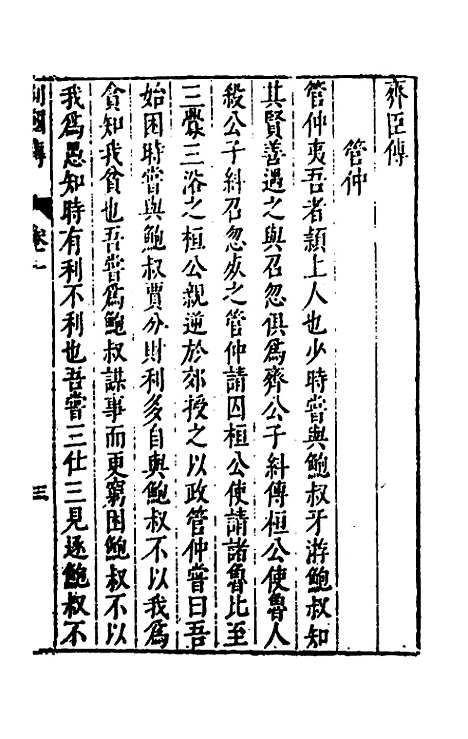 齊臣傳
管仲
管仲夷吾者頴上人也少時嘗與鮑叔牙游鮑叔知
其賢善遇之與召忽俱爲齊公子糾傳桓公使魯人
殺公子糾召忽死之管仲請囚桓公使請諸魯比至
三釁三浴之桓公親逆於郊授之以政管仲嘗曰吾
始困時嘗與鮑叔賈分財利多自與鮑叔不以我爲
貪知我貧也吾嘗爲鮑叔謀事而更窮困鮑叔不以
我爲愚知時有利不利也吾嘗三仕三見逐鮑叔不
列國傳 卷一 三